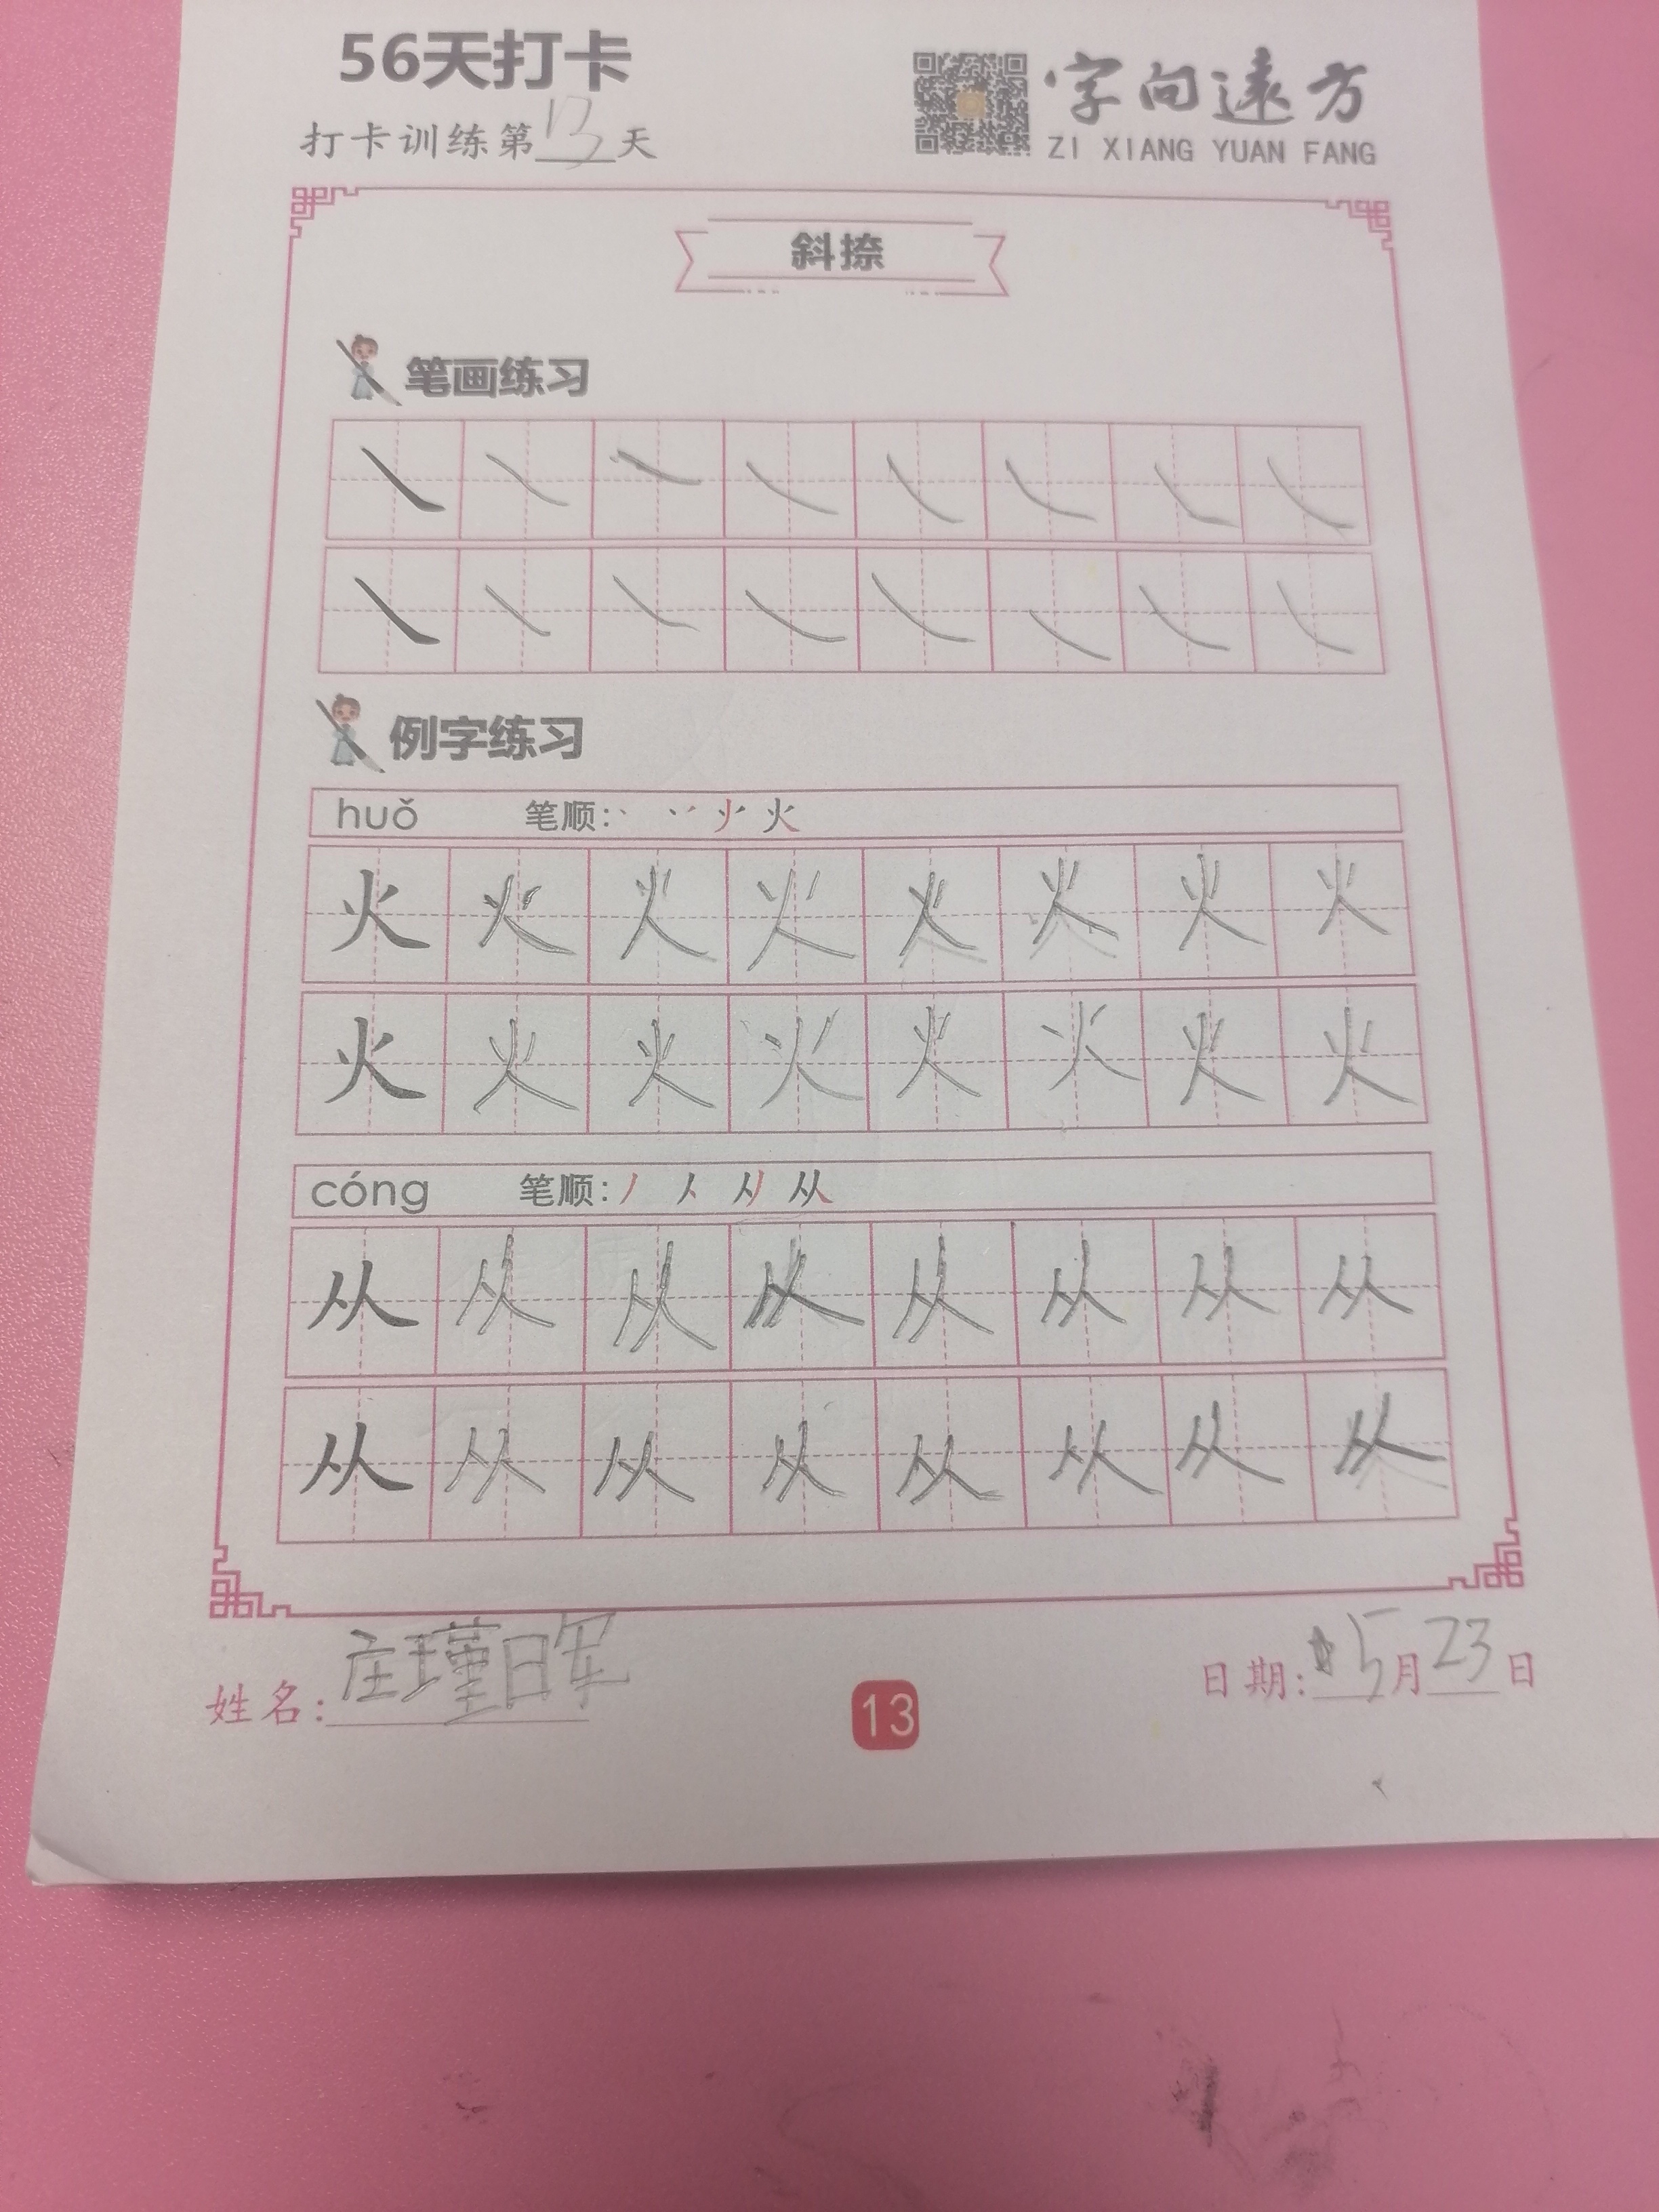 56天打卡
打卡训练第13天
字向遠方
ZI XIANG YUAN FANG
斜捺
笔画练习
例字练习
huǒ 笔顺: 火
火 火 火 火 火 火 火 火
火 火 火 火 火 火 火 火
cóng 笔顺: 丿 人 从
从 从 从 从 从 从 从 从
从 从 从 从 从 从 从 从
姓名: 庄瑾
13
日期: 5月23日